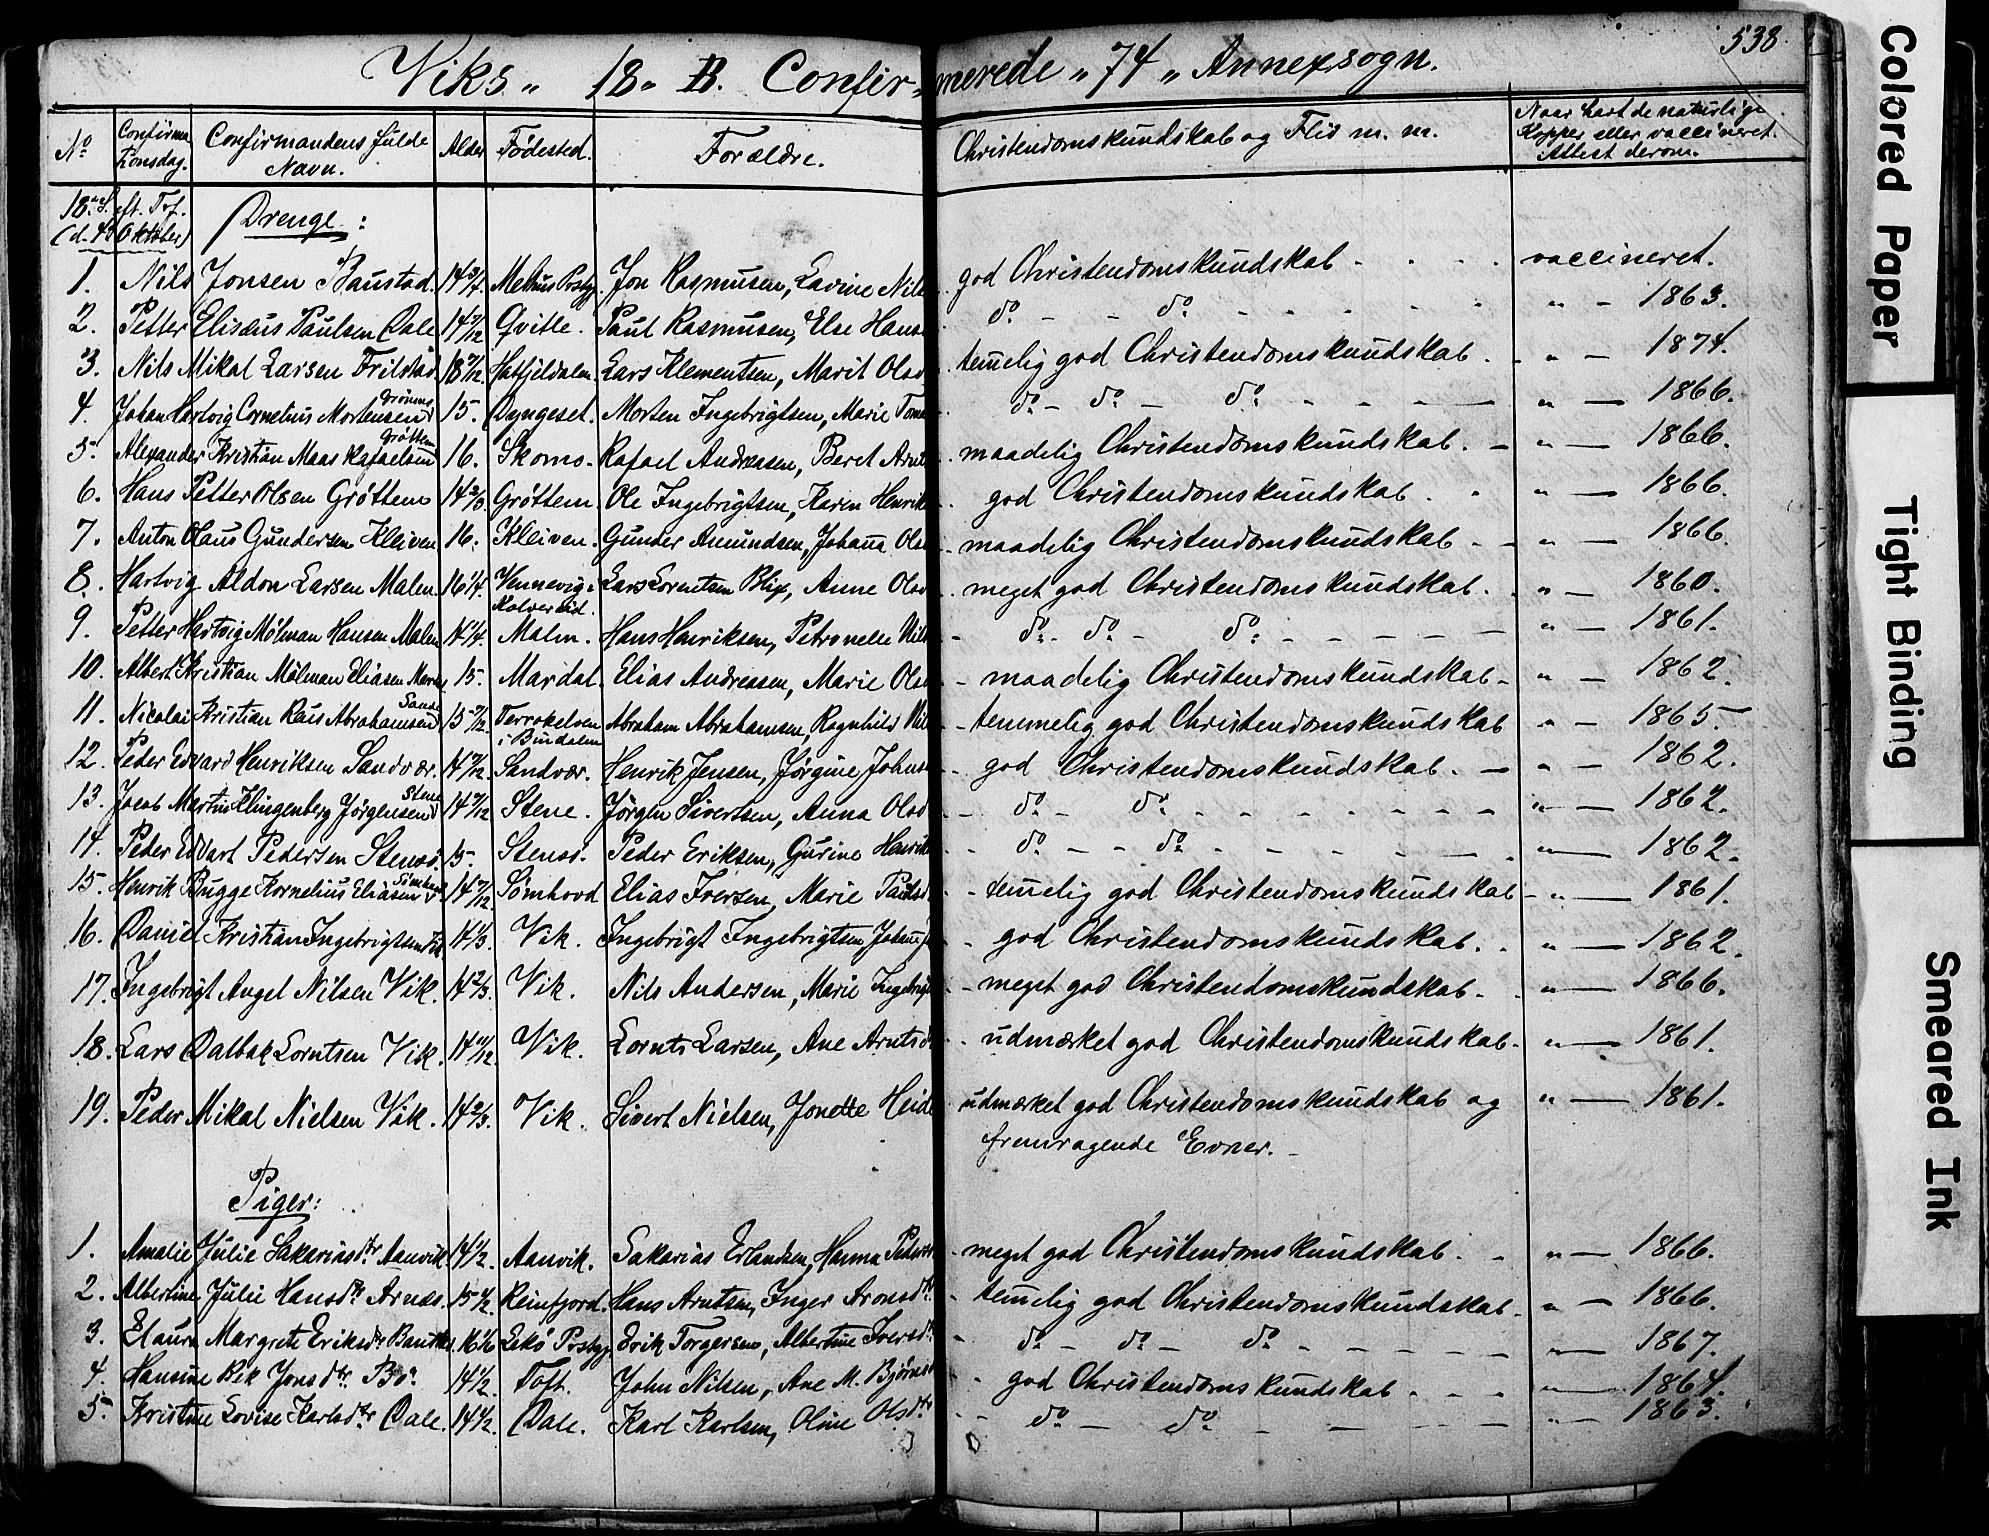 538.
Viks „ 18 „ B. Confirmerede „ 74 „ Annexsogn.
No Confirmationsdag. Confirmandens fulde Navn. Alder Fødested. Forældre. Christendomskundskab og Flid m. m. Naar havt de naturlige Kopper eller vaccineret. Attest derom.
18de S. eft. Tref.
(d. 4de Oktober) Drenge:
1. Nils Jonsen Baustad. 14 Melhus Pstgj. Jon Rasmusen, Lavine Nils god Christendomskundskab - - - - vaccineret.
2. Petter Elisæus Paulsen Dale 14 /12 Qvitle. Paul Rasmusen, Else Hans do - - do - - - - - „ - 1863.
3. Nils Mikal Larsen Trilstad 18 /12 Hatfjeldalen. Lars Klementsen, Marit Olsd temelig god Christendomskundskab - - „ - 1874.
4. Johan Hartvig Cornelius Mortensen 15. Dyngeset. Morten Ingebrigtsen, Marie Tom do - do - do - - - - - „ - 1866.
5. Alexander Kristian Maas Rafaelsen Grøttem 16. Skomo. Rafael Andreasen, Beret Arnt maadelig Christendomskundskab. - „ - 1866.
6. Hans Petter Olsen Grøttem 14 2/3 Grøttem. Ole Ingebrigtsen, Karen Henrik god Christendomskundskab. - „ - 1866.
7. Anton Olaus Gundersen Kleiven 16. Kleiven. Gunder Amundsen, Johanna Ols maadelig Christendomskundskab - - „ - 1866.
8. Hartvig Aldon Larsen Malm. 16 1/4. Vennevig i Kolvereid. Lars Lorentsen Blix, Anne Olsd meget god Christendomskundskab. - „ - 1860.
9. Petter Hartvig Mølman Hansen Malm 14 1/4. Malm. Hans Henriksen, Petronelle Nils - do - do - do - - - - - „ - 1861.
10. Albert Kristian Mølman Eliasen Mar 15. Mardal. Elias Andreasen, Marie Ols - maadelig Christendomskundskab - „ - 1862.
11. Nicolai Kristian Raus Abrahamsen Sande 15 /12. Terrakelven i Bindalen Abraham Abrahamsen, Ragnhild Nil - temmelig god Christendomskundskab „ - 1865.
12. Peder Edvard Henriksen Sandvær. 14 /12 Sandvær. Henrik Jensen, Jørgine Johns - god Christendomskundskab. - „ - 1862.
13. Jacob Martin Klingenberg Jørgensen Stene 14 /12 Stene. Jørgen Sivertsen, Anna Olsd - do - do - - - - - - „ - 1862.
14. Peder Edvart Pedersen Stensø. 15. Stensø. Peder Eriksen, Gurine Henrik - do - - do - - - - - - „ - 1862.
15. Henrik Bugge Kornelius Eliasen Sømhovd 14 /12 Sømhovd Elias Iversen, Marie Paulsd - temelig god Christendomskundskab - „ - 1861.
16. Daniel Kristian Ingebrigtsen Vik 14 1/3. Vik. Ingebrigt Ingebrigtsen, Johanne - god Christendomskundskab. - „ - 1862.
17. Ingebrigt Angel Nilsen Vik. 14 2/3. Vik. Nils Andersen, Marie Ingebrigt - meget god Christendomskundskab. - „ - 1866.
18. Lars Dalbak Lorntsen Vik. 14 11/12. Vik. Lornts Larsen, Ane Arntsd - udmærket god Christendomskundskab. „ - 1861.
19. Peder Mikal Nielsen Vik. 14 2/3. Vik. Sivert Nielsen, Jonette Heid udmærket god Christendomskundskab og fremragende Evner. - „ - 1861.
Piger:
1. Amalie Julie Sakariasdtr Aanvik 14 1/2. Aanvik. Sakarias Erlandsen, Hanna Peders - meget god Christendomskundskab. - „ - 1866.
2. Albertine Julie Hansdtr Arnæs. 15 1/2. Reinfjord. Hans Arntsen, Inger Aronsdtr - temelig god Christendomskundskab - „ - 1866.
3. Elaura Margrete Eriksdtr 16 1/6 Lekø Pstgj. Erik Torgersen, Albertine Iversdtr - do - do - do - - - - - „ - 1867.
4. Hansine Bek Jonsdtr. Bø. 14 1/2. Toft. John Nilsen, Ane M. Bjørns - god Christendomskundskab - - - „ - 1864.
5. Kristine Lovise Karlsdtr Dale. 14 1/2. Dale. Karl Karlsen, Oline Olsdtr - do - do - - - - „ - 1863.
Colored Paper
Tight Binding
Smeared Ink